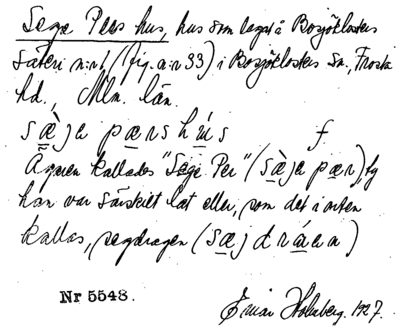 Sege Pers hus, hus som legat å Bosjöklosters
säteri n:r 1 (fig. a:r 33) i Bosjöklosters Sn., Frosta
hd., Mlm. län.
sæ̀je pærs hús f
Ägaren kallades "Sege Per" (sæ̀je pær), ty
han var särskilt lat eller, som det i orten
kallas, segdragen (sæjdráen)
Nr 5548.
Einar Holmberg. 1927.